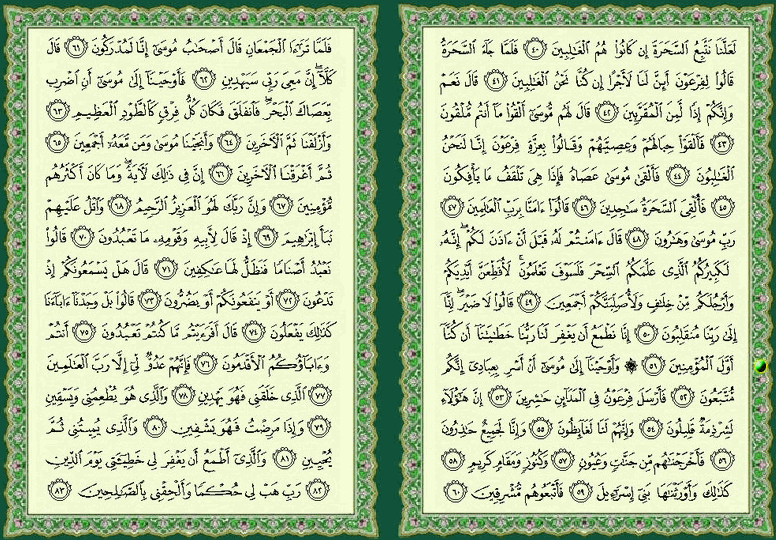 لَعَلَّنَا نَتَّبِعُ ٱلسَّحَرَةَ إِن كَانُوا۟ هُمُ ٱلْغَٰلِبِينَ ٤٠ فَلَمَّا جَآءَ ٱلسَّحَرَةُ
قَالُوا۟ لِفِرْعَوْنَ أَئِنَّ لَنَا لَأَجْرًا إِن كُنَّا نَحْنُ ٱلْغَٰلِبِينَ ٤١ قَالَ نَعَمْ
وَإِنَّكُمْ إِذًا لَّمِنَ ٱلْمُقَرَّبِينَ ٤٢ قَالَ لَهُم مُّوسَىٰٓ أَلْقُوا۟ مَآ أَنتُم مُّلْقُونَ
٤٣ فَأَلْقَوْا۟ حِبَالَهُمْ وَعِصِيَّهُمْ وَقَالُوا۟ بِعِزَّةِ فِرْعَوْنَ إِنَّا لَنَحْنُ
ٱلْغَٰلِبُونَ ٤٤ فَأَلْقَىٰ مُوسَىٰ عَصَاهُ فَإِذَا هِىَ تَلْقَفُ مَا يَأْفِكُونَ
٤٥ فَأُلْقِىَ ٱلسَّحَرَةُ سَٰجِدِينَ ٤٦ قَالُوٓا۟ ءَامَنَّا بِرَبِّ ٱلْعَٰلَمِينَ ٤٧
رَبِّ مُوسَىٰ وَهَٰرُونَ ٤٨ قَالَ ءَامَنتُمْ لَهُۥ قَبْلَ أَنْ ءَاذَنَ لَكُمْ ۖ إِنَّهُۥ
لَكَبِيرُكُمُ ٱلَّذِى عَلَّمَكُمُ ٱلسِّحْرَ فَلَسَوْفَ تَعْلَمُونَ ۚ لَأُقَطِّعَنَّ أَيْدِيَكُمْ
وَأَرْجُلَكُم مِّنْ خِلَٰفٍ وَلَأُصَلِّبَنَّكُمْ أَجْمَعِينَ ٤٩ قَالُوا۟ لَا ضَيْرَ ۖ إِنَّآ
إِلَىٰ رَبِّنَا مُنقَلِبُونَ ٥٠ إِنَّا نَطْمَعُ أَن يَغْفِرَ لَنَا رَبُّنَا خَطَٰيَٰنَآ أَن كُنَّآ
أَوَّلَ ٱلْمُؤْمِنِينَ ٥١ ۞ وَأَوْحَيْنَآ إِلَىٰ مُوسَىٰٓ أَنْ أَسْرِ بِعِبَادِىٓ إِنَّكُم
مُّتَّبَعُونَ ٥٢ فَأَرْسَلَ فِرْعَوْنُ فِى ٱلْمَدَآئِنِ حَٰشِرِينَ ٥٣ إِنَّ هَٰٓؤُلَآءِ
لَشِرْذِمَةٌ قَلِيلُونَ ٥٤ وَإِنَّهُمْ لَنَا لَغَآئِظُونَ ٥٥ وَإِنَّا لَجَمِيعٌ حَٰذِرُونَ
٥٦ فَأَخْرَجْنَٰهُم مِّن جَنَّٰتٍ وَعُيُونٍ ٥٧ وَكُنُوزٍ وَمَقَامٍ كَرِيمٍ ٥٨
كَذَٰلِكَ وَأَوْرَثْنَٰهَا بَنِىٓ إِسْرَٰٓءِيلَ ٥٩ فَأَتْبَعُوهُم مُّشْرِقِينَ ٦٠
فَلَمَّا تَرَٰٓءَا ٱلْجَمْعَانِ قَالَ أَصْحَٰبُ مُوسَىٰٓ إِنَّا لَمُدْرَكُونَ ٦١ قَالَ
كَلَّآ ۖ إِنَّ مَعِىَ رَبِّى سَيَهْدِينِ ٦٢ فَأَوْحَيْنَآ إِلَىٰ مُوسَىٰٓ أَنِ ٱضْرِب
بِّعَصَاكَ ٱلْبَحْرَ ۖ فَٱنفَلَقَ فَكَانَ كُلُّ فِرْقٍ كَٱلطَّوْدِ ٱلْعَظِيمِ ٦٣
وَأَزْلَفْنَا ثَمَّ ٱلْءَاخَرِينَ ٦٤ وَأَنجَيْنَا مُوسَىٰ وَمَن مَّعَهُۥٓ أَجْمَعِينَ ٦٥
ثُمَّ أَغْرَقْنَا ٱلْءَاخَرِينَ ٦٦ إِنَّ فِى ذَٰلِكَ لَءَايَةً ۖ وَمَا كَانَ أَكْثَرُهُم
مُّؤْمِنِينَ ٦٧ وَإِنَّ رَبَّكَ لَهُوَ ٱلْعَزِيزُ ٱلرَّحِيمُ ٦٨ وَٱتْلُ عَلَيْهِمْ
نَبَأَ إِبْرَٰهِيمَ ٦٩ إِذْ قَالَ لِأَبِيهِ وَقَوْمِهِۦ مَا تَعْبُدُونَ ٧٠ قَالُوا۟
نَعْبُدُ أَصْنَامًا فَنَظَلُّ لَهَا عَٰكِفِينَ ٧١ قَالَ هَلْ يَسْمَعُونَكُمْ إِذْ
تَدْعُونَ ٧٢ أَوْ يَنفَعُونَكُمْ أَوْ يَضُرُّونَ ٧٣ قَالُوا۟ بَلْ وَجَدْنَآ ءَابَآءَنَا
كَذَٰلِكَ يَفْعَلُونَ ٧٤ قَالَ أَفَرَءَيْتُم مَّا كُنتُمْ تَعْبُدُونَ ٧٥ أَنتُمْ
وَءَابَآؤُكُمُ ٱلْأَقْدَمُونَ ٧٦ فَإِنَّهُمْ عَدُوٌّ لِّىٓ إِلَّا رَبَّ ٱلْعَٰلَمِينَ
٧٧ ٱلَّذِى خَلَقَنِى فَهُوَ يَهْدِينِ ٧٨ وَٱلَّذِى هُوَ يُطْعِمُنِى وَيَسْقِينِ
٧٩ وَإِذَا مَرِضْتُ فَهُوَ يَشْفِينِ ٨٠ وَٱلَّذِى يُمِيتُنِى ثُمَّ
يُحْيِينِ ٨١ وَٱلَّذِىٓ أَطْمَعُ أَن يَغْفِرَ لِى خَطِيٓـَٔتِى يَوْمَ ٱلدِّينِ
٨٢ رَبِّ هَبْ لِى حُكْمًا وَأَلْحِقْنِى بِٱلصَّٰلِحِينَ ٨٣